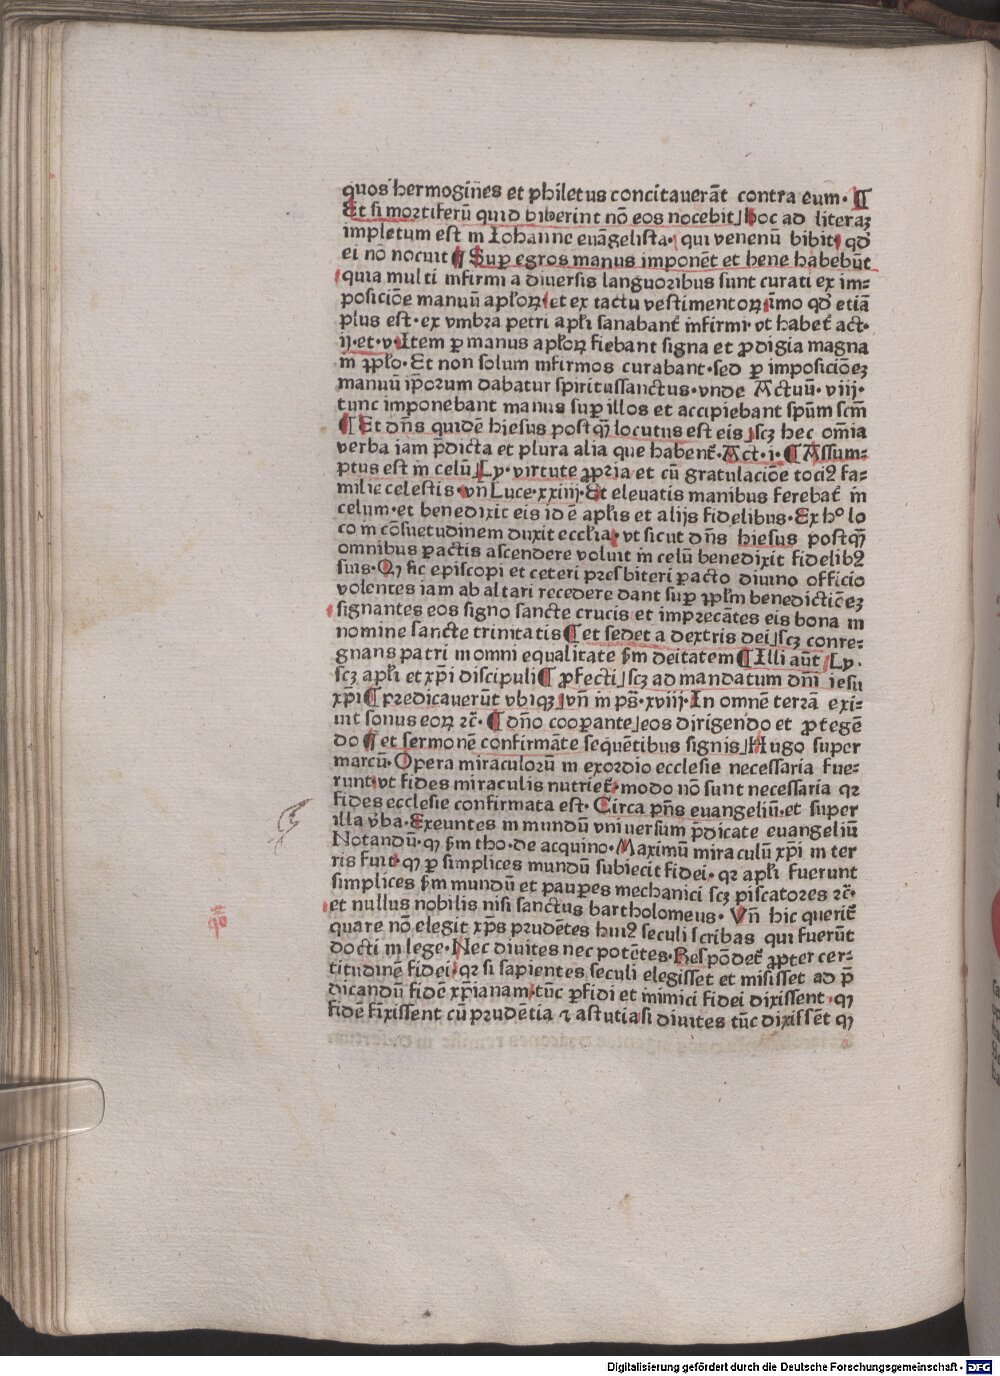 quos hermogines et philetus concitauerāt contra eum· ¶
Et si mortiferū quid biberint nō eos nocebit⌋hoc ad literaꝫ
impletum est in Iohanne euāgelista· qui venenū bibit qd̓
ei nō nocuit ¶ Suꝑ egros manus imponēt et bene habebūt
quia multi infirmi a diuersis languoribus sunt curati ex im⸗
posiciōe manuū apl̓oꝝ et ex tactu vestimentoꝝ imo qd̓ etiā
plus est· ex vmbra petri apl̓i sanabant̓ infirmi· vt habet̓ act·
ij·et·v·Item ꝑ manus apl̓oꝝ fiebant signa et ꝓdigia magna
in ꝓpl̓o·Et non solum infirmos curabant·sed ꝑ imposiciōeꝫ
manuū ip̄orum dabatur spiritussanctus·vnde Actuū·viij·
tunc imponebant manus suꝑ illos et accipiebant sp̄um scm̄
¶ Et dn̄s quidē hiesus postꝙ̄ locutus est eis ⌋scꝫ hec om̄ia
verba iam p̄dicta et plura alia que habent̓·Act·i·¶ Assum⸗
ptus est in celū⌋Ly·virtute ꝓpria et cū gratulaciōe toci9 fa⸗
milie celestis·vn̄ Luce·xxiiij·Et eleuatis manibus ferebat̓ in
celum·et benedixit eis id ē apl̓is et alijs fidelibus·Ex hº lo
co in cōsuetudinem duxit eccl̓ia·vt sicut dn̄s hiesus postꝙ̄
omnibus ꝑactis ascendere voluit in celū benedixit fidelib9
suis·Qꝫ sic episcopi et ceteri presbiteri ꝑacto diuino officio
volentes iam ab altari recedere dant suꝑ ꝓpl̓m benedictiōeꝫ
signantes eos signo sancte crucis et imprecātes eis bona in
nomine sancte trinitatis ¶ et sedet a dextris dei⌋scꝫ conre⸗
gnans patri in omni equalitate ẜm deitatem ¶ Illi aūt ⌋Ly.
scꝫ apl̓i et xp̄i discipuli ¶ ꝓfecti⌋scꝫ ad mandatum dn̄i iesu
xp̄i ¶ predicauerūt vbiqꝫ ⌋vn̄ in ps̄·xviij·In omnē terrā exi⸗
uit sonus eoꝝ ⁊c̄·¶ dn̄o cooꝑante⌋eos dirigendo et ꝓtegē
do ¶ et sermonē confirmāte sequētibus signis⌋Hugo super
marcū·Opera miraculorū in exordio ecclesie necessaria fue⸗
runt vt fides miraculis nutriet̓·modo nō sunt necessaria qꝛ
fides ecclesie confirmata est·Circa pn̄s euangeliū·et super
illa v̓ba·Exeuntes in mundū vniuersum p̄dicate euangeliū
Notandū·qꝫ ẜm tho·de acquino·Maximū miraculū xp̄i in ter
ris fuit·qꝫ ꝑ simplices mundū subiecit fidei·qꝛ apl̓i fuerunt
simplices ẜm mundū et pauꝑes mechanici scꝫ piscatores ⁊c̄·
et nullus nobilis nisi sanctus bartholomeus·Vn̄ hic querit̓
quare nō elegit xp̄s prudētes hui9 seculi scribas qui fuerūt
docti in lege·Nec diuites nec potētes·Respōdet̓ ꝓpter cer⸗
titudinē fidei·qꝛ si sapientes seculi elegisset et misisset ad p̄
dicandū fidē xp̄ianam·tūc ꝑfidi et inimici fidei dixissent·qꝫ
fidē finxissent cū prudētia ⁊ astutia si diuites tūc dixissēt qꝫ
Digitalisierung gefördert durch die Deutsche Forschungsgemeinschaft - DFG